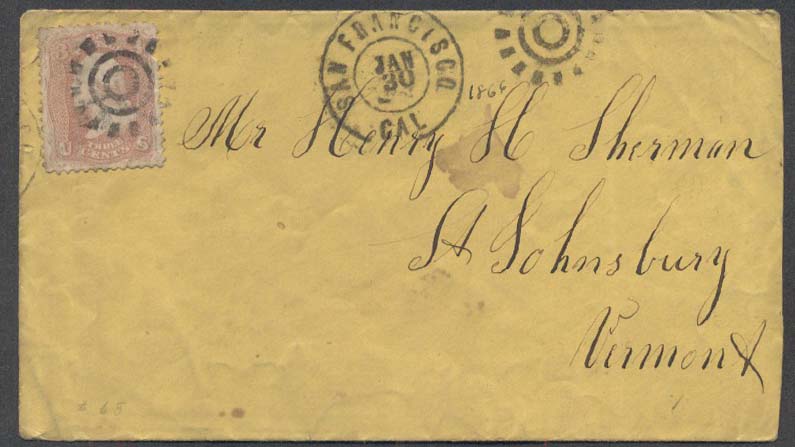 SAN FRANCISCO
JAN
30
CAL
186
U S
THREE
CENTS
Mr Henry H Sherman
St Johnsbury
Vermont
# 65